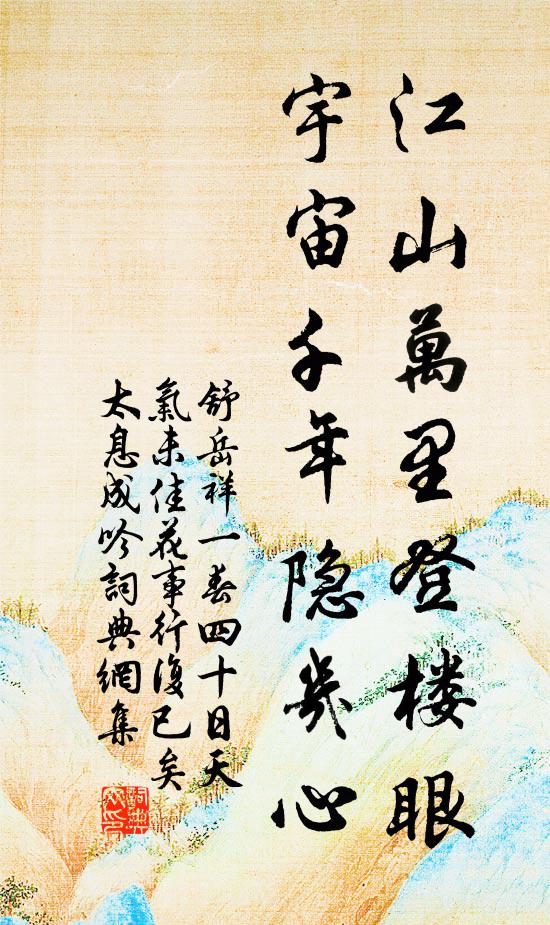 江山萬里登楼眼
宇宙千年隐几心
舒岳祥一春四十日天
氣未佳花事行復已矣
太息成吟詞典網集